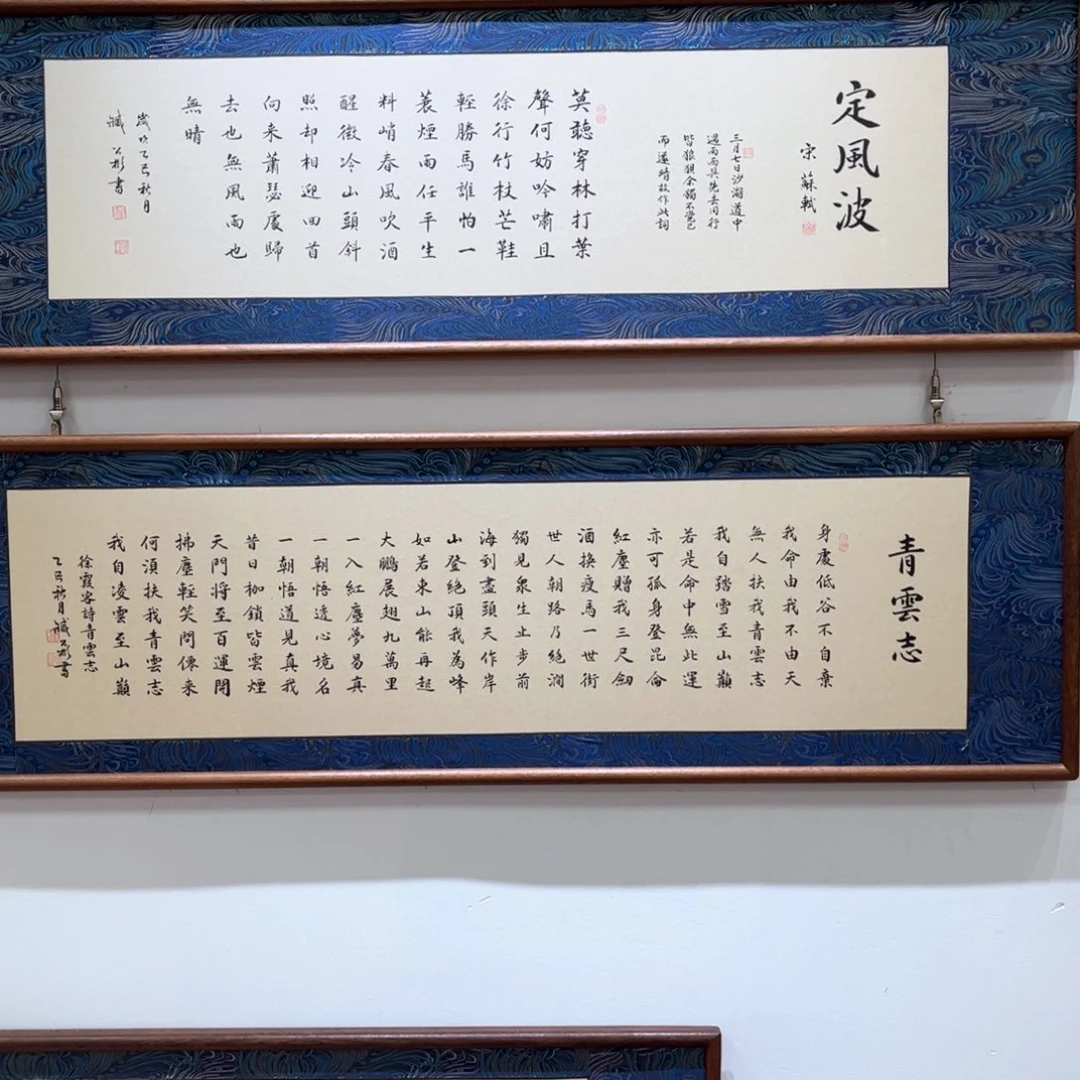 定風波
宋 蘇軾
三月七日沙湖道中
遇雨雨具先去同行
皆狼狽余獨不覺已
而遂晴故作此詞
莫聽穿林打葉
聲何妨吟嘯且
徐行竹杖芒鞋
輕勝馬誰怕一
蓑煙雨任平生
料峭春風吹酒
醒微冷山頭斜
照却相迎回首
向來蕭瑟處歸
去也無風雨也
無晴
歲次乙巳秋月
書
青雲志
身處低谷不自棄
我命由我不由天
無人扶我青雲志
我自踏雪至山巔
若是命中無此運
亦可孤身登昆侖
紅塵贈我三尺劍
酒換瘦馬一世街
世人朝路乃絕澗
獨見眾生止步前
海到盡頭天作岸
山登絕頂我為峰
如若東山能再起
大鵬展翅九萬里
一入紅塵夢易真
一朝悟透心境名
一朝悟道見真我
昔日枷鎖皆雲煙
天門將至百運開
拂塵輕笑問儻來
何須扶我青雲志
我自凌雲至山巔
徐霞客詩青雲志
乙巳秋月 書